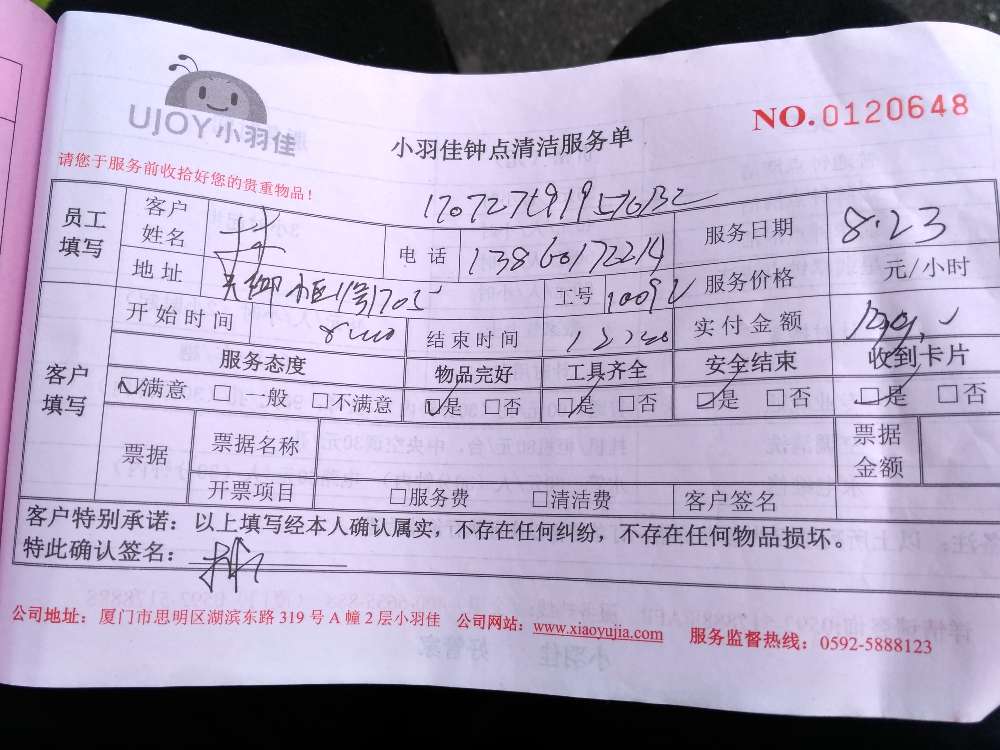 UJOY小羽佳
小羽佳钟点清洁服务单
NO.0120648
请您于服务前收拾好您的贵重物品！
员工填写
客户姓名
电话 13860172214
服务日期 8.23
地址
工号
服务价格 元/小时
客户填写
开始时间
结束时间
实付金额
服务态度 物品完好 工具齐全 安全结束 收到卡片
☑满意 □一般 □不满意 ☑是 □否 ☑是 □否 ☑是 □否 ☑是 □否
票据 票据名称 票据金额
开票项目 □服务费 □清洁费 客户签名
客户特别承诺：以上填写经本人确认属实，不存在任何纠纷，不存在任何物品损坏。
特此确认签名：
公司地址：厦门市思明区湖滨东路 319 号 A 幢 2 层小羽佳 公司网站：www.xiaoyujia.com 服务监督热线：0592-5888123